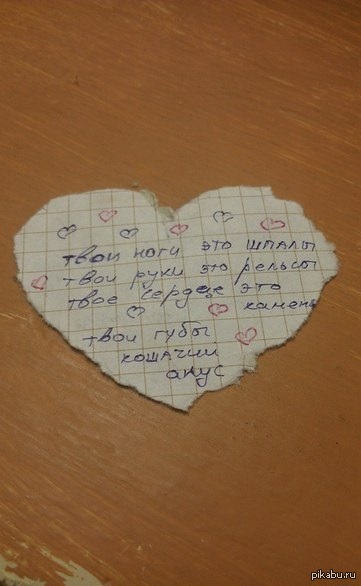 твои ноги это шпалы
твои руки это рельсы
твое сердце это
камень
твои губы
кошачий
анус
pikabu.ru